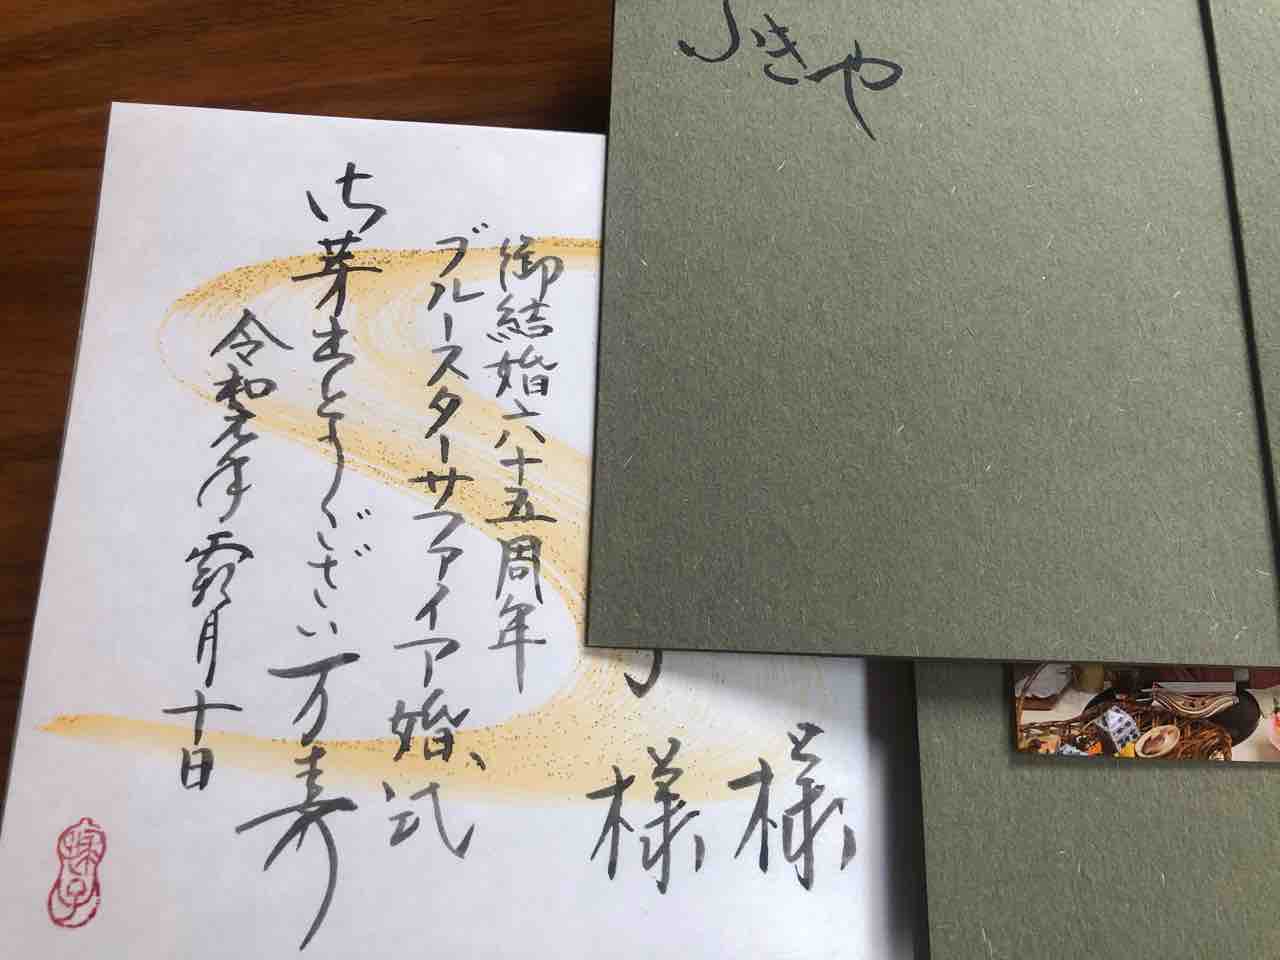 ふきや
様
様
御結婚六十五周年
ブルースターサファイア婚式
御芽出とうござい万寿
令和元年霜月十日